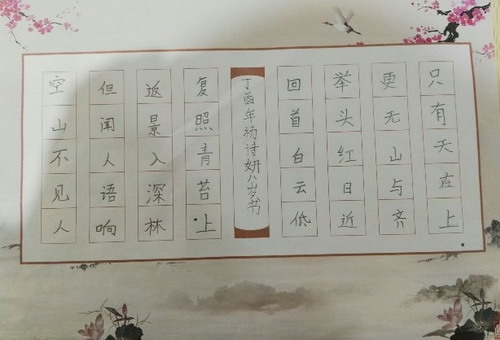 只有天在上
更无山与齐
举头红日近
回首白云低
丁酉年杨诗妍八岁书
空山不见人
但闻人语响
返景入深林
复照青苔上